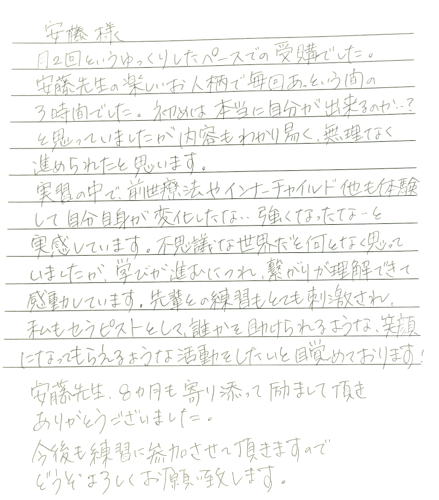 安藤様
月2回というゆっくりしたペースでの受購でした。
安藤先生の楽しいお人柄で毎回あっという間の
3時間でした。初めは本当に自分が出来るのか…?
と思っていましたが内容もわかり易く、無理なく
進められたと思います。
実習の中で、前世療法やインナーチャイルド他も体験
して自分自身が変化したな…強くなったなーと
実感しています。不思議な世界だと何となく思って
いましたが、学びが進むにつれ、繋がりが理解できて
感動しています。先輩との練習もとても刺激され、
私もセラピストとして、誰かを助けられるような、笑顔
になってもらえるような活動をしたいと目覚めております!
安藤先生、8ヵ月も寄り添って励まして頂き
ありがとうございました。
今後も練習に参加させて頂きますので
どうぞよろしくお願い致します。